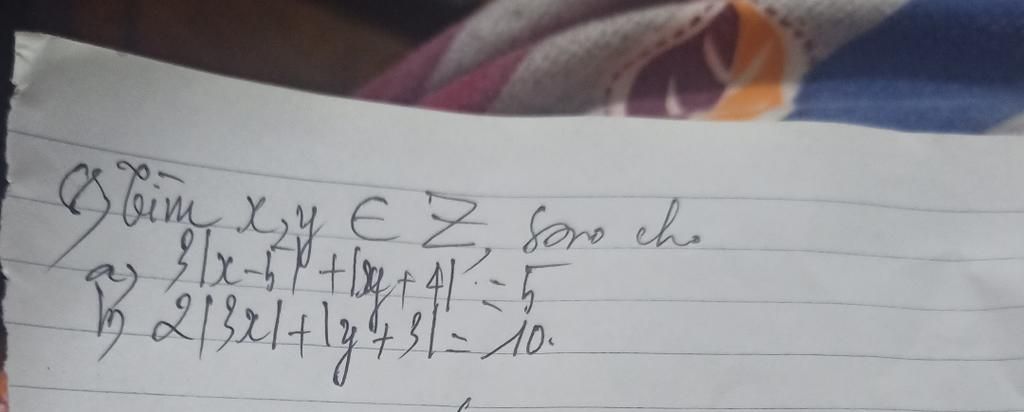 Tìm x, y ∈ Z, sao cho
a) 3|x-5| + |xy+4| = 5
b) 2|3x| + |y+3| = 10.